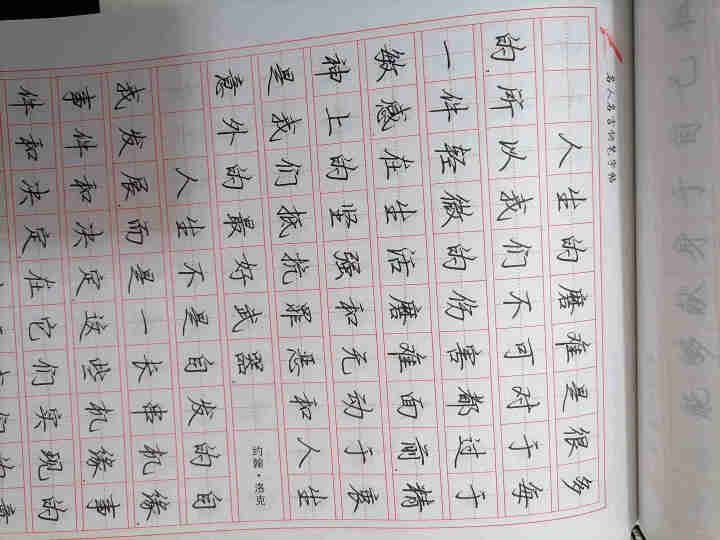 名人名言钢笔字帖
人生的磨难是很多
的,所以我们不可对于每
一件轻微的伤害都过于
敏感。在生活磨难面前,精
神上的坚强和无动于衷
是我们抵抗罪恶和人生
意外的最好武器。
约翰·洛克
人生不是自发的自
我发展,而是一长串机缘、
事件和决定,这些机缘、事
件和决定在它们实现的